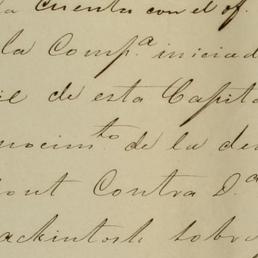 la Cuenta con el of.
la Comp.ª iniciad
il de esta Capita
nocim.to de la de
out Contra D.ª
ackintosh sobre